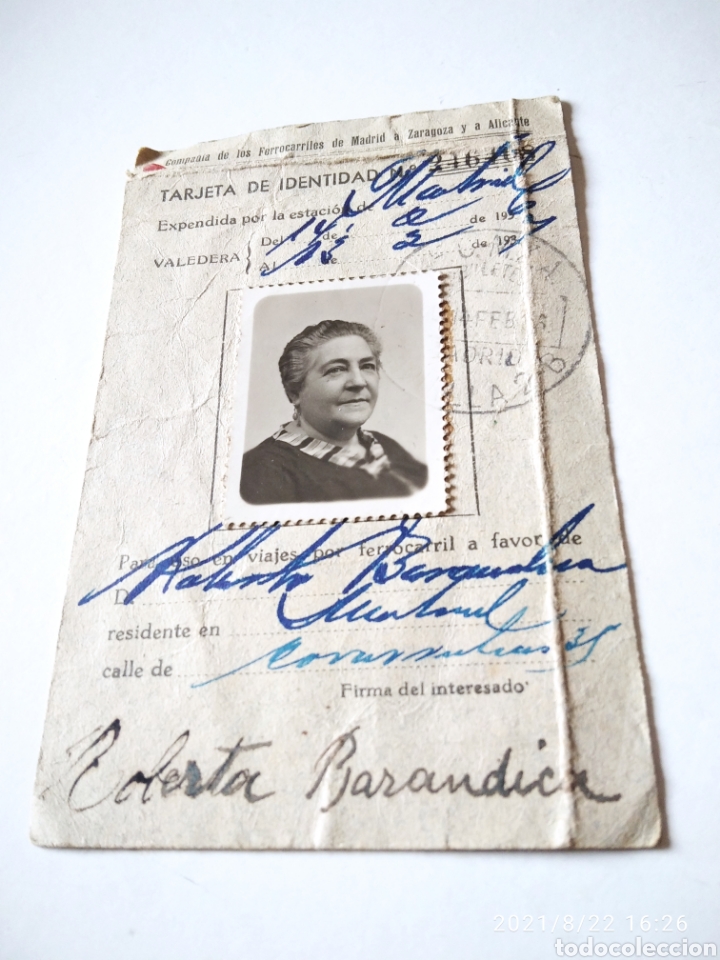 Compañía de los Ferrocarriles de Madrid a Zaragoza y a Alicante
TARJETA DE IDENTIDAD N.º
Expendida por la estación de Madrid
VALEDERA
Del 14 de 2 de 193
Al 15 de 2 de 193
14 FEB
MADRID
Para uso en viajes por ferrocarril a favor de
D. Roberta
residente en Madrid
calle de Covarrubias 35
Firma del interesado
Roberta Barandica
2021/8/22 16:26
todocoleccion